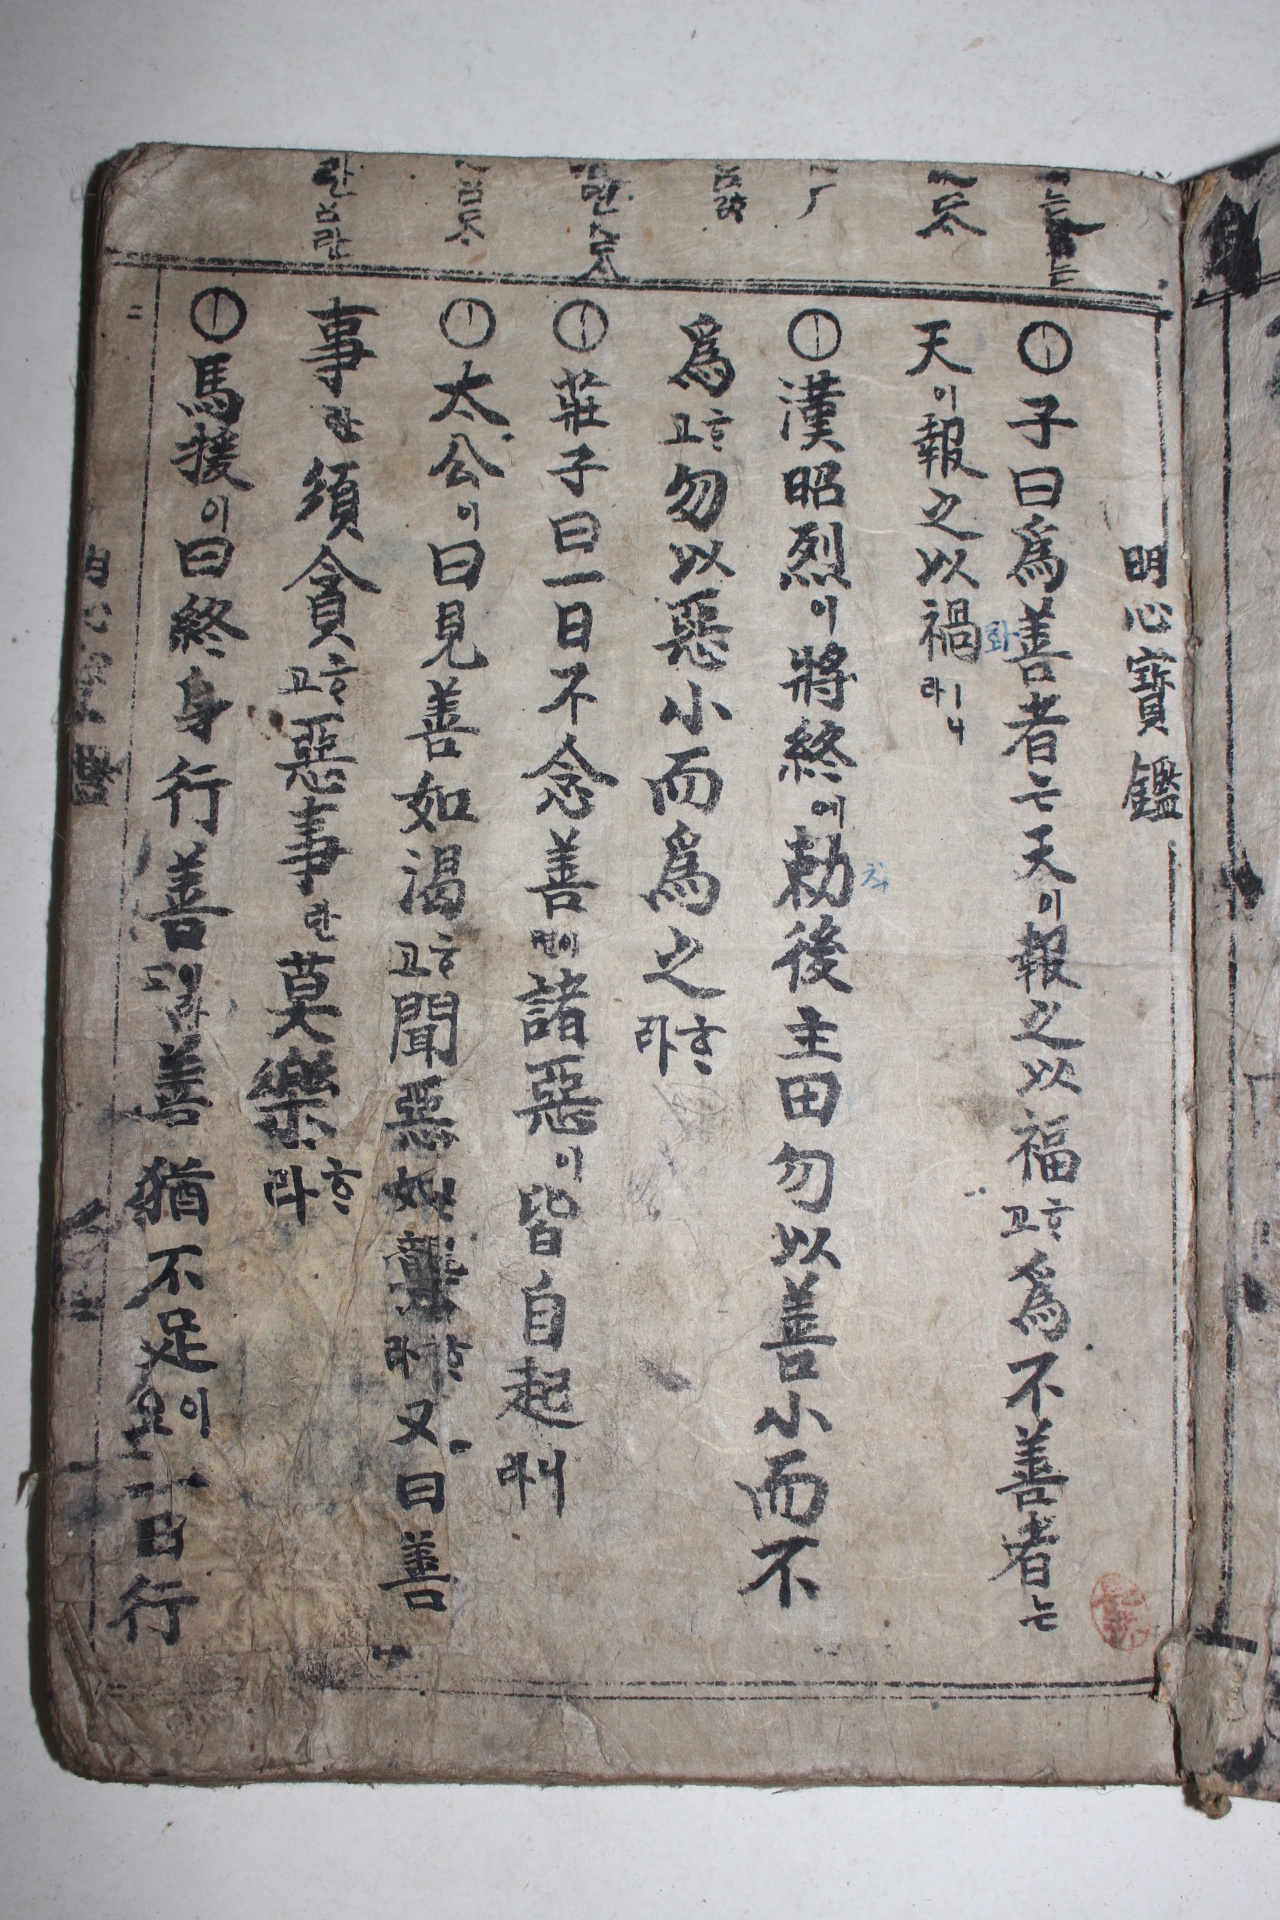 明心寶鑑
子曰爲善者는天이報之以福하고爲不善者는
天이報之以禍ㅣ니라
화
漢昭烈이將終에勅後主曰勿以善小而不
칙
爲하고勿以惡小而爲之하라
莊子曰一日不念善이면諸惡이皆自起니라
太公이曰見善如渴하고聞惡如聾하라又曰善
事란須貪하고惡事란莫樂하라
馬援이曰終身行善이라도善猶不足이요一日行
二